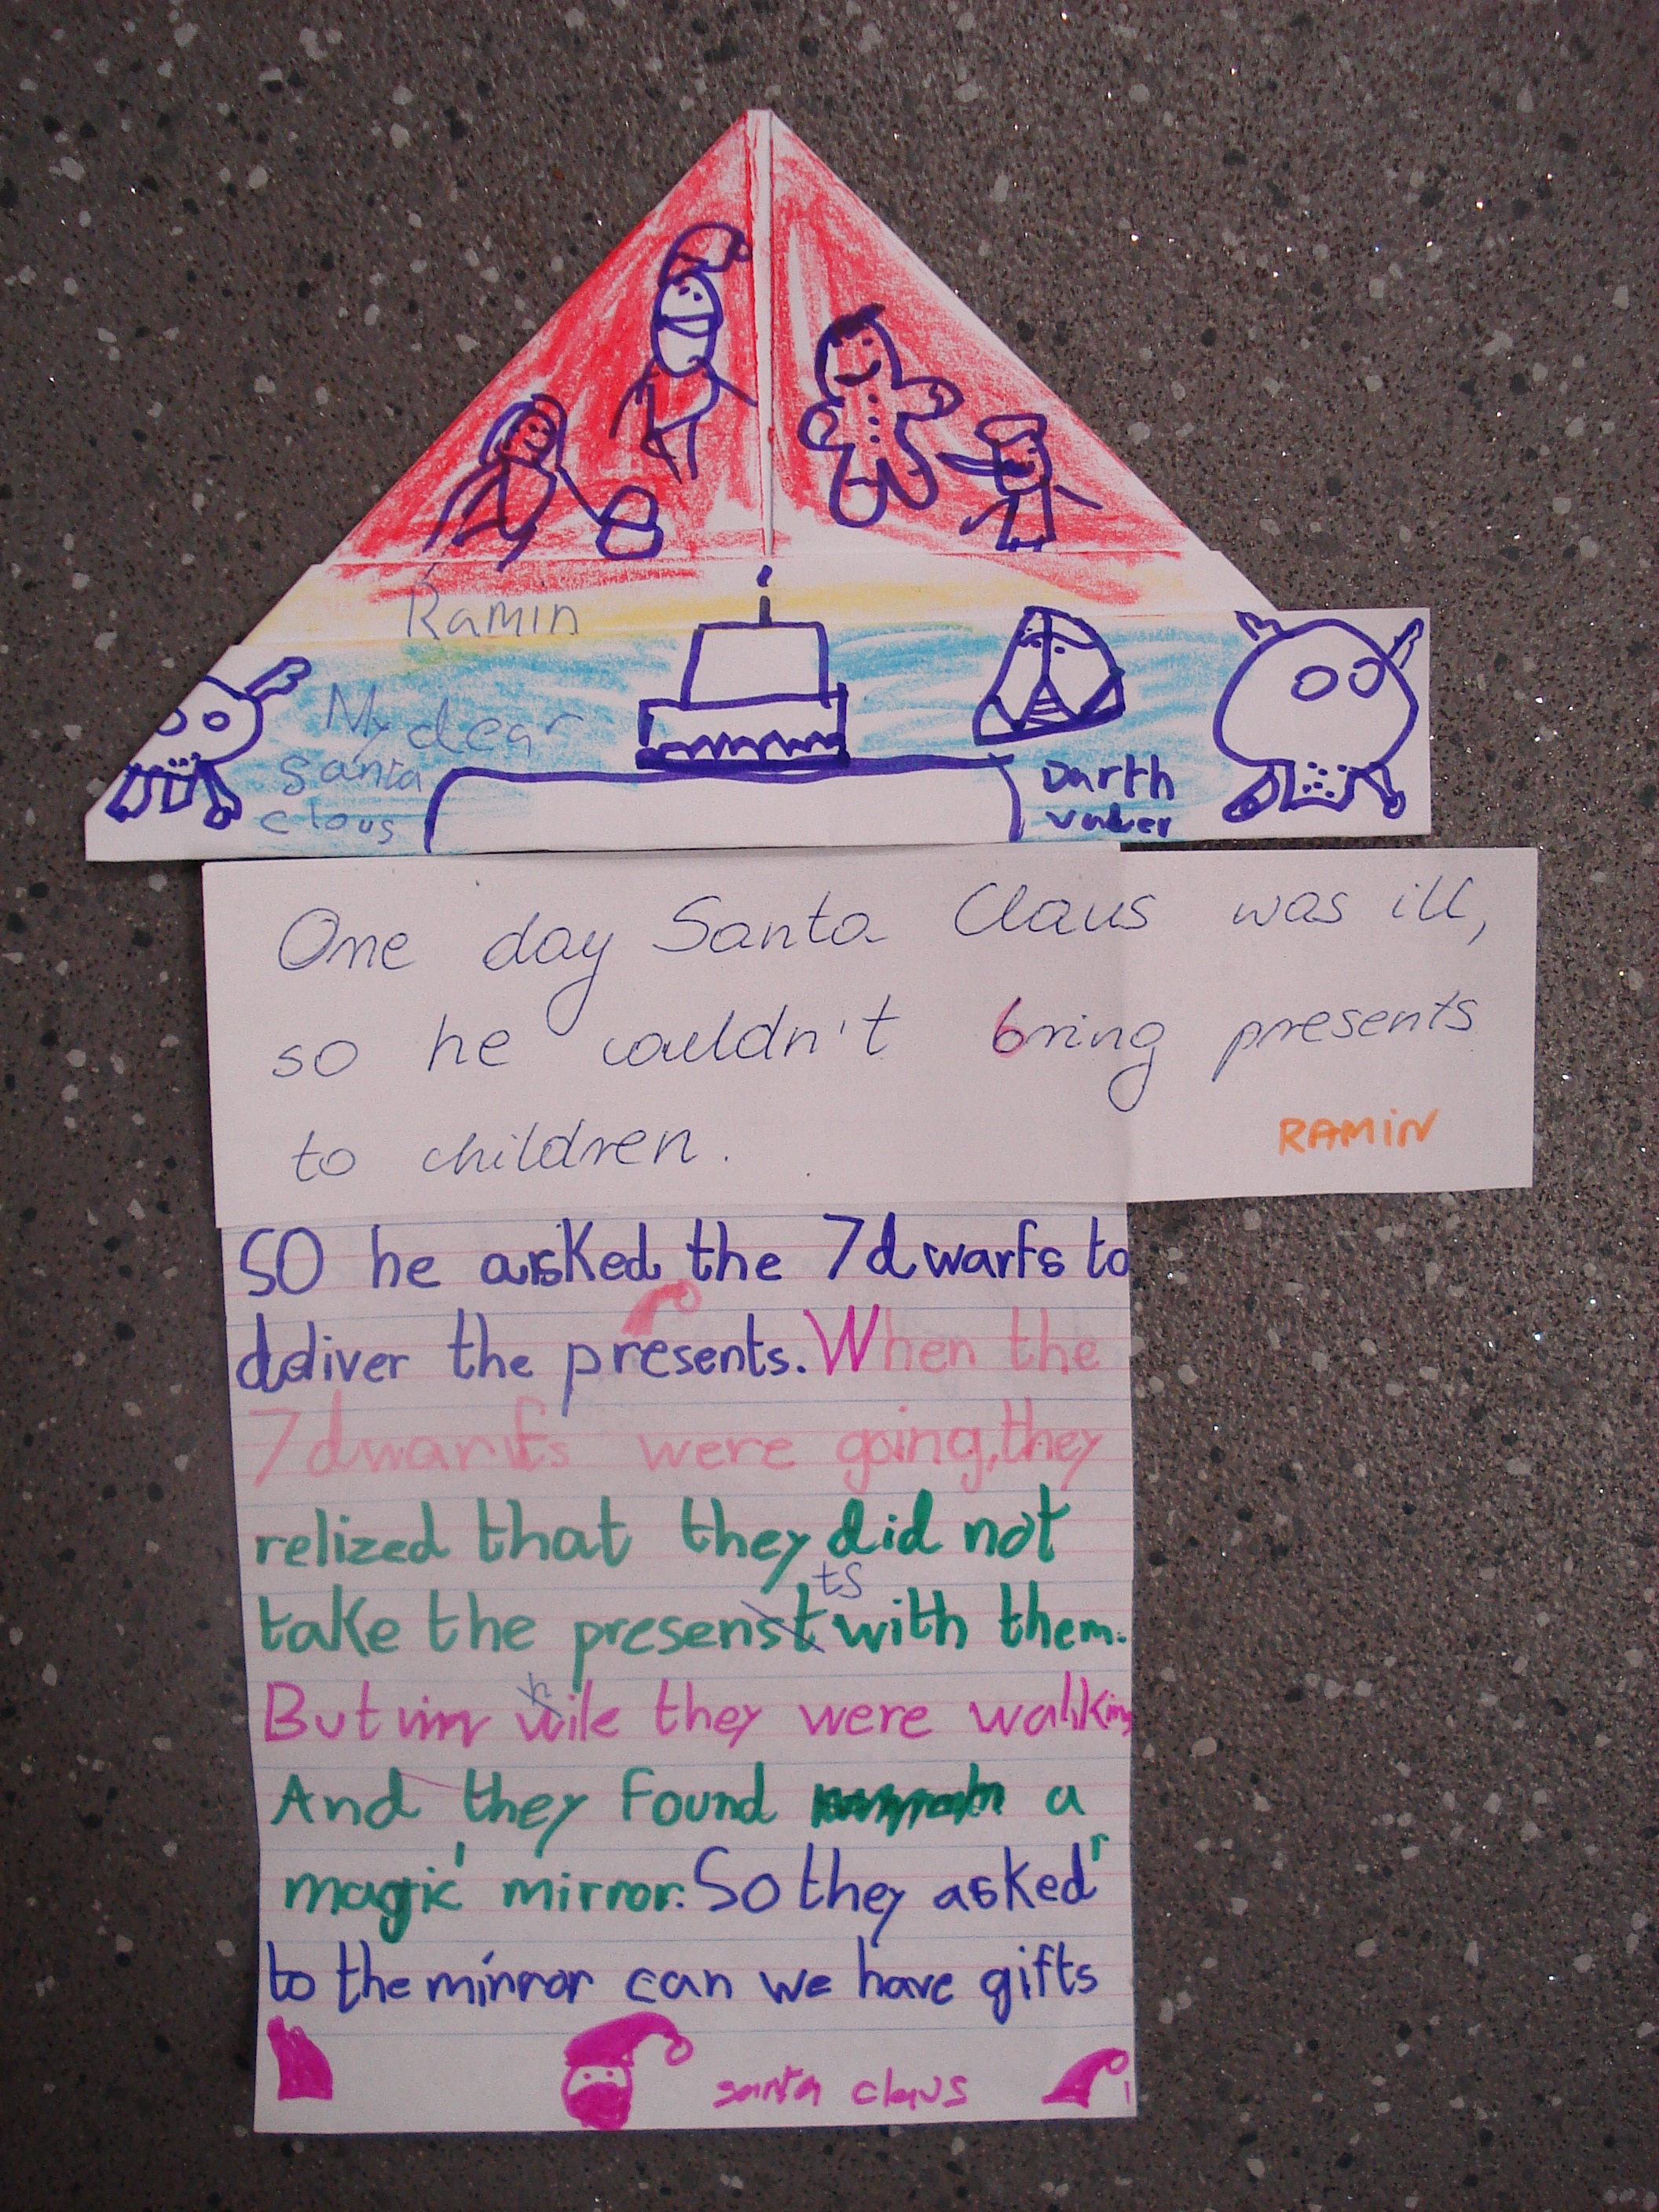 Ramin
My dear
Santa
Claus
Darth
vader
One day Santa Claus was ill,
so he couldn't bring presents
to children.
RAMIN
SO he asked the 7 dwarfs to
deliver the presents. When the
7 dwarfs were going, they
relized that they did not
take the presents with them.
But while they were walking
And they found a
magic mirror. So they asked
to the mirror can we have gifts
santa claus